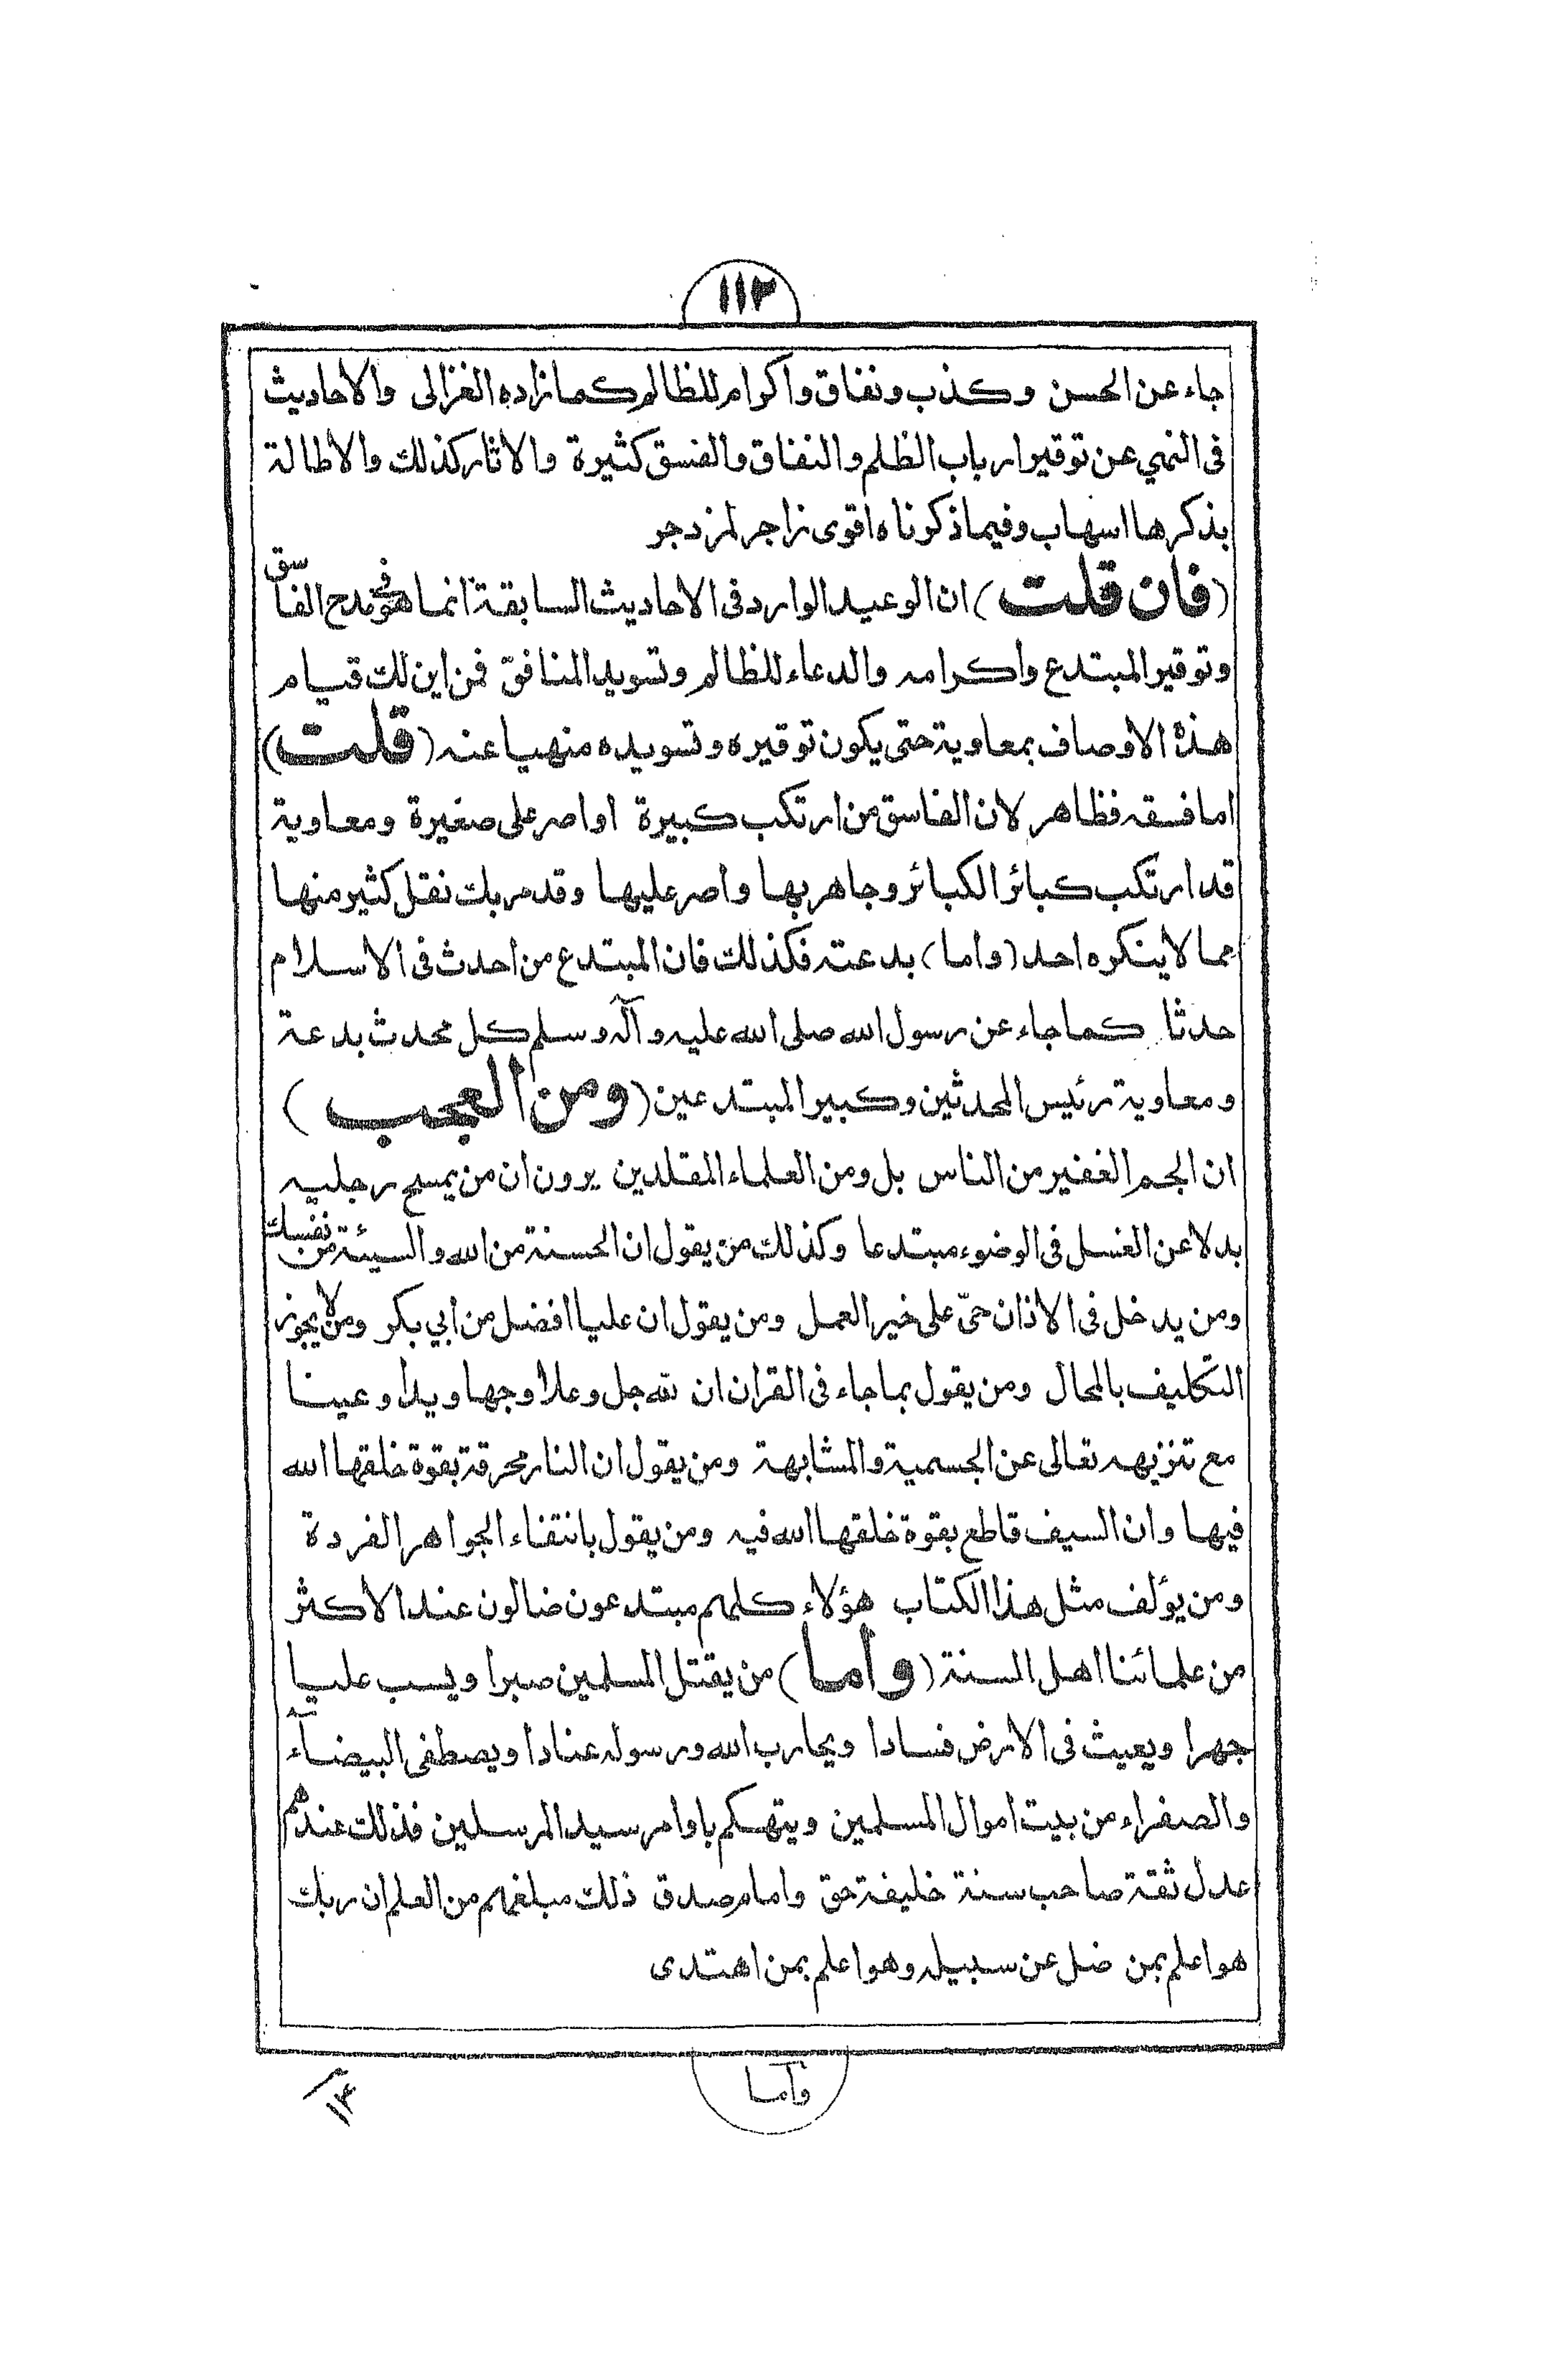 ١١٢
جاء عن الحسن وكذب ونفاق واكرام للظالم كما زاده الغزالى والاحاديث
فى النهي عن توقير ارباب الظلم والنفاق والفسق كثيرة والاثار كذلك والاطالة
بذكرها اسهاب وفيما ذكرناه اقوى زاجر لمزدجر
(فان قلت) ان الوعيد الوارد فى الاحاديث السابقة انما هو فى مدح الفاسق
وتوقير المبتدع واكرامه والدعاء للظالم وتسويد المنافق فمن اين لك قيام
هذه الاوصاف بمعاوية حتى يكون توقيره وتسويده منهيا عنه (قلت)
اما فسقه فظاهر لان الفاسق من ارتكب كبيرة او اصر على صغيرة ومعاوية
قد ارتكب كبائر الكبائر وجاهر بها واصر عليها وقد مر بك نقل كثير منها
مما لا ينكره احد (واما) بدعته فكذلك فان المبتدع من احدث فى الاسلام
حدثا كما جاء عن رسول الله صلى الله عليه وآله وسلم كل محدث بدعة
ومعاوية رئيس المحدثين وكبير المبتدعين (ومن العجب)
ان الجم الغفير من الناس بل ومن العلماء المقلدين يرون ان من يمسح رجليه
بدلا عن الغسل فى الوضوء مبتدعا وكذلك من يقول ان الحسنة من الله والسيئة من نفسك
ومن يدخل فى الاذان حىّ على خير العمل ومن يقول ان عليا افضل من ابي بكر ومن لا يجوز
التكليف بالمحال ومن يقول بما جاء فى القران ان لله جل وعلا وجها ويدا وعينا
مع تنزيهه تعالى عن الجسمية والمشابهة ومن يقول ان النار محرقة بقوة خلقها الله
فيها وان السيف قاطع بقوة خلقها الله فيه ومن يقول بانتفاء الجواهر الفردة
ومن يؤلف مثل هذا الكتاب هؤلاء كلهم مبتدعون ضالون عند الاكثر
من علمائنا اهل السنة (واما) من يقتل المسلمين صبرا ويسب عليا
جهرا ويعيث فى الارض فسادا ويحارب الله ورسوله عنادا ويصطفى البيضآء
والصفراء من بيت اموال المسلمين ويتهكم باوامر سيد المرسلين فذلك عندهم
عدل ثقة صاحب سنة خليفة حق وامام صدق ذلك مبلغهم من العلم ان ربك
هو اعلم بمن ضل عن سبيله وهو اعلم بمن اهتدى
وأما